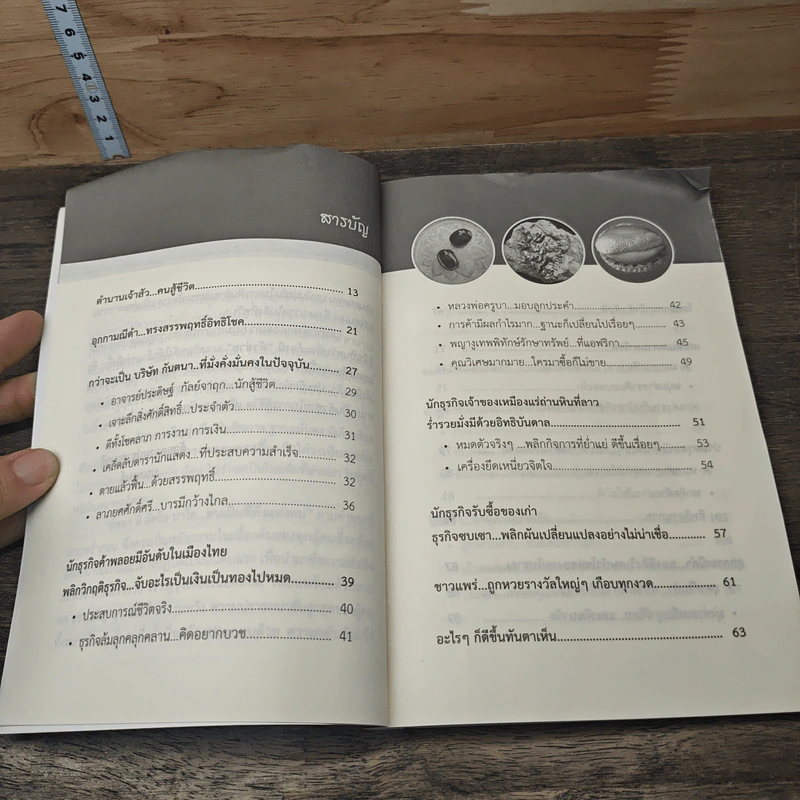 7 6 5 4 3 2 1
สารบัญ
ตำนานเจ้าสัว...คนสู้ชีวิต 13
อุกกามณีดำ...ทรงสรรพฤทธิ์อิทธิโชค 21
กว่าจะเป็น บริษัท กันตนา..ที่มั่งคั่งมั่นคงในปัจจุบัน 27
• อาจารย์ประดิษฐ์ กัลย์จาฤก...นักสู้ชีวิต 29
• เจาะลึกสิ่งศักดิ์สิทธิ์...ประจำตัว 30
• ดีทั้งโชคลาภ การงาน การเงิน 31
• เคล็ดลับดารานักแสดง...ที่ประสบความสำเร็จ 32
• ตายแล้วฟื้น...ด้วยสรรพฤทธิ์ 32
• ลาภยศศักดิ์ศรี...บารมีกว้างไกล 36
นักธุรกิจค้าพลอยมีอันดับในเมืองไทย
พลิกวิกฤติธุรกิจ...จับอะไรเป็นเงินเป็นทองไปหมด 39
• ประสบการณ์ชีวิตจริง 40
• ธุรกิจล้มลุกคลุกคลาน...คิดอยากบวช 41
• หลวงพ่อครูบา...มอบลูกประคำ 42
• การค้ามีผลกำไรมาก...ฐานะก็เปลี่ยนไปเรื่อยๆ 43
• พญางูเทพพิทักษ์รักษาทรัพย์...ที่แอฟริกา 45
• คุณวิเศษมากมาย...ใครมาซื้อก็ไม่ขาย 49
นักธุรกิจเจ้าของเหมืองแร่ถ่านหินที่ลาว
ร่ำรวยมั่งมีด้วยอิทธิบันดาล 51
• หมดตัวจริงๆ ...พลิกกิจการที่ย่ำแย่ ดีขึ้นเรื่อยๆ 53
• เครื่องยึดเหนี่ยวจิตใจ 54
นักธุรกิจรับซื้อของเก่า
ธุรกิจซบเซา...พลิกผันเปลี่ยนแปลงอย่างไม่น่าเชื่อ 57
ชาวแพร่...ถูกหวยรางวัลใหญ่ๆ เกือบทุกงวด 61
อะไรๆ ก็ดีขึ้นทันตาเห็น 63